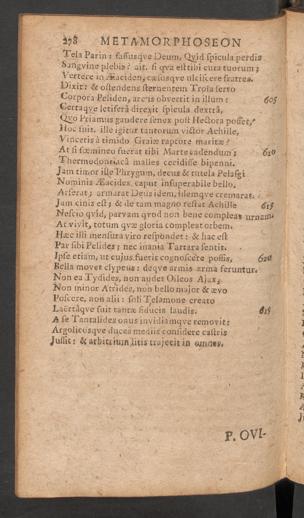 278 METAMORPHOSEON
Tela Parin: fassusque Deum, Qvid spicula perdis
Sangvine plebis? ait. si qva est tibi cura tuorum;
Vertere in Æaciden, cæsosque ulciscere fratres.
Dixit: & ostendens sternentem Troïa ferro
Corpora Pelidен, arcus obvertit in illum: 605
Certaqve letiferâ direxit spicula dextrâ.
Qvo Priamus gaudere senex post Hectora posset,
Hoc fuit. ille igitur tantorum victor Achille,
Vinceris à timido Grajæ raptore maritæ?
At si fœmineo fuerat tibi Marte cadendum; 610
Thermodontiacâ malles cecidisse bipenni.
Jam timor ille Phrygum, decus & tutela Pelasgi
Nominis Æacides, caput insuperabile bello,
Arserat; armarat Deus idem, idemqve cremarat.
Jam cinis est; & de tam magno restat Achille 615
Nescio qvid, parvam qvod non bene compleat urnam.
At vivit, totum qvæ gloria compleat orbem.
Hæc illi mensura viro respondet: & hac est
Par sibi Pelides; nec inania Tartara sentit.
Ipse etiam, ut cujus fuerit cognoscere possis, 620
Bella movet clypeus: deqve armis arma feruntur.
Non ea Tydides, non audet Oileos Ajax;
Non minor Atrides, non bello major & ævo
Poscere, non alii: soli Telamone creato
Laërtâqve fuit tantæ fiducia laudis. 615
A se Tantalides onus invidiamqve removit:
Argolicosqve duces mediis considere castris
Jussit: & arbitrium litis trajecit in omnes.
P. OVI-